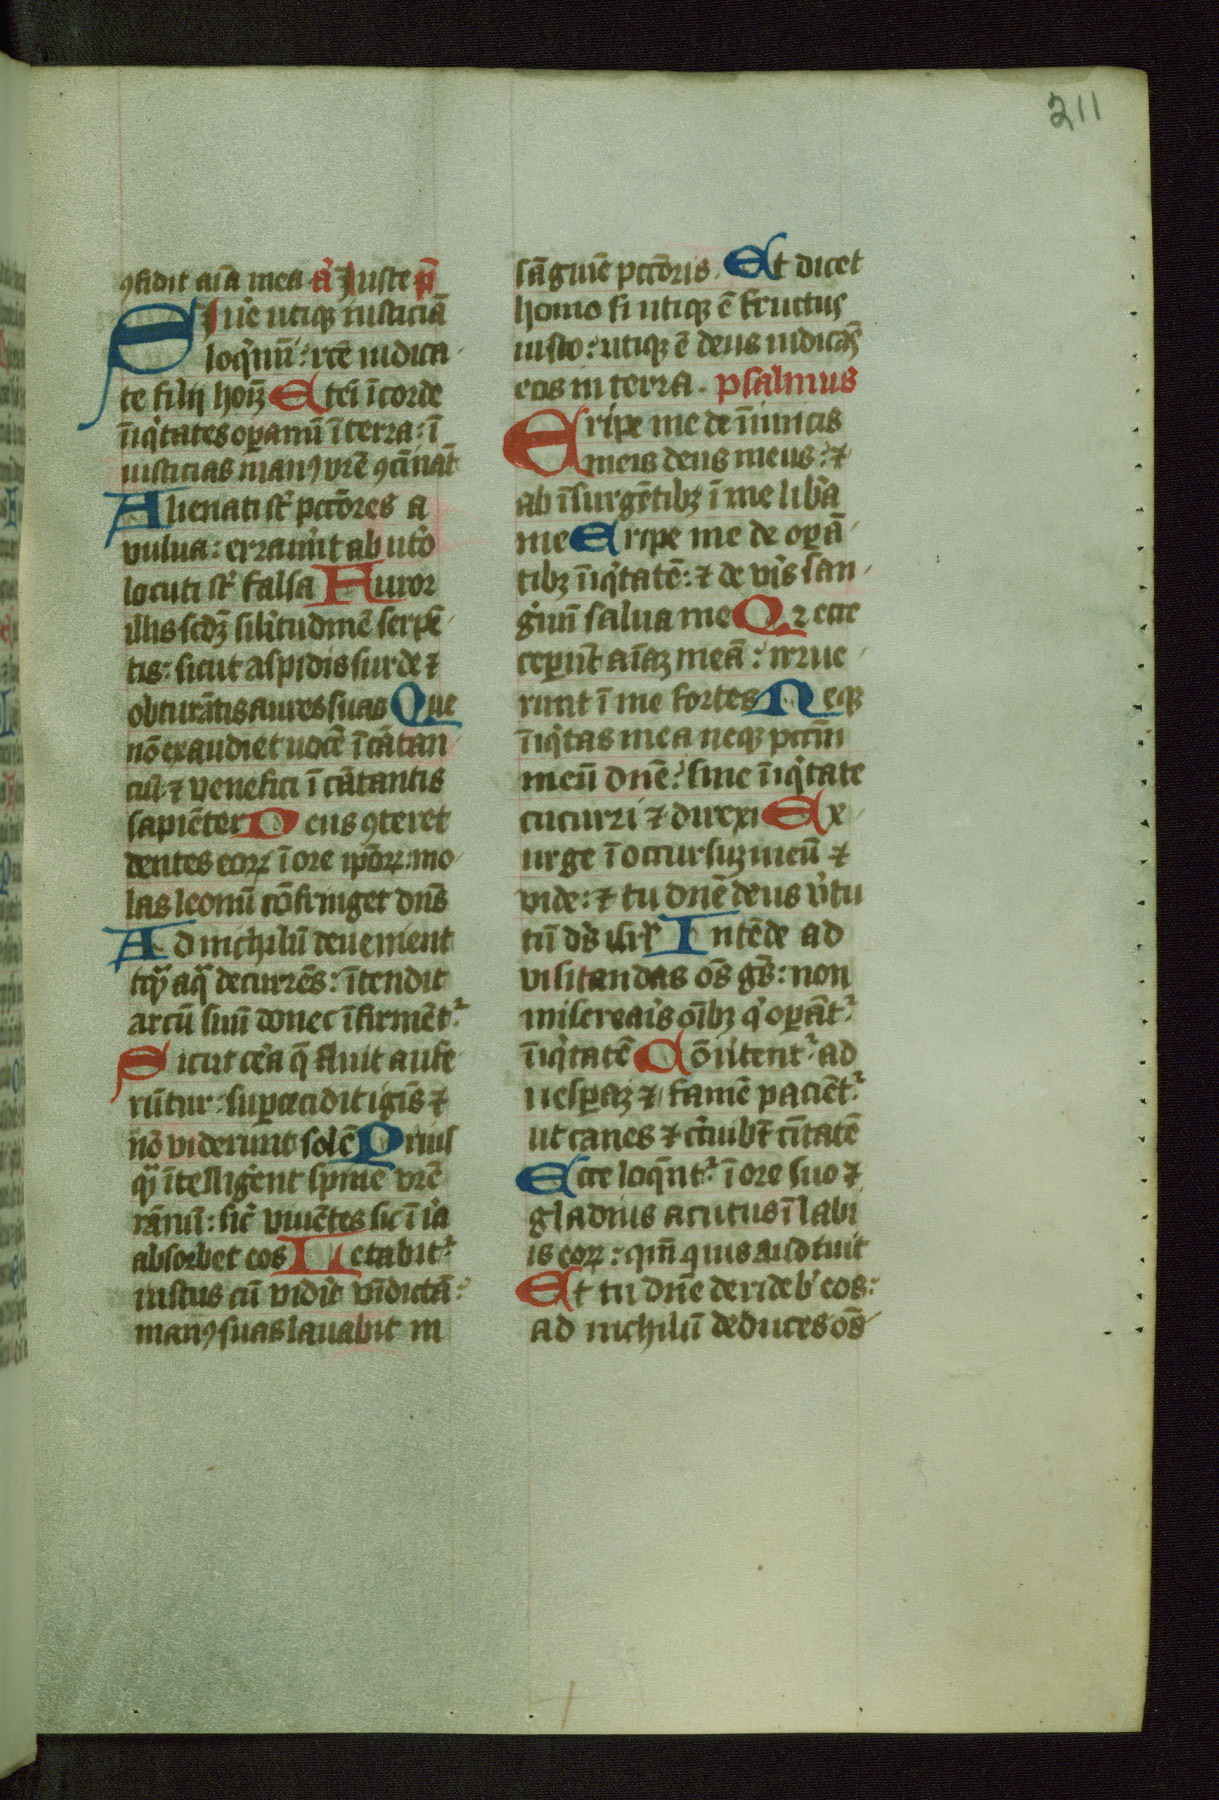 211
ꝯfidit aīa mea an̄ Juste p̄s
Si v̓e utiqꝫ iusticiā
loq̓minī: rc̄e iudica
te filij hoīꝫ Eteī ī corde
īiq̓tates opamī ī terra: ī
iusticias manꝰ vr̄e ꝯcīnāt
Alienati st̄ pctōres a
vulua: erraūt ab ut̓o
locuti st̄ falsa Furor
illis scdꝫ sil̓itudinē serpē
tis: sicut aspidis surde ⁊
obturātis aures suas Que
nō exaudiet uocē īcātan
ciū ⁊ venefici ī cātantis
sapiēter Deus ꝯteret
dentes eoꝝ ī ore ip̄oꝝ: mo
las leonū cōfringet dn̄s
Ad nichilū deuenient
tq̄ aq̄ decurrēs: ītendit
arcū suū donec īfirmēt᷑
Sicut cēa q̄ fluit aufe
rūtur: suꝑcecidit ignis ⁊
nō viderunt solē Prius
qꝫ ītelligerent spine vr̄e
rānū: sic̄ viuētes sic ī ira
absorbet eos Letabit᷑
iustus cū vid̓it vīdictā:
manꝰ suas lauabit in
sāguīe pctōris. Et dicet
homo si utiqꝫ ē fructus
iusto: utiqꝫ ē deus iudicās
eos in terra. psalmus
Eripe me de īimicis
meis deus meus: ⁊
ab īsurgētibꝫ ī me lib̓a
me Eripe me de oꝑā
tibꝫ īiq̓tatē: ⁊ de viris san
guinū salua me Qꝛ ecce
ceꝑūt aīaꝫ meā: irrue
runt ī me fortes Neqꝫ
īiq̓tas mea neqꝫ pctm̄
meū dn̄e: sine īiq̓tate
cucurri ⁊ direxi Ex
urge ī occursuꝫ meū ⁊
vide: ⁊ tu dn̄e deus v̓tu
tū ds̄ isrl̄ Intēde ad
visitandas om̄s gētes: non
miserearis oībꝫ q̓ oꝑāt᷑
īiq̓tatē Cōu̓tent᷑ ad
uesꝑaꝫ ⁊ famē pacient᷑
ut canes ⁊ circuibūt cīitatē
Ecce loq̄nt᷑ ī ore suo ⁊
gladius acutus ī labi
is eoꝝ: qm̄ quis audiuit
Et tu dn̄e deridebis eos:
ad nichilū deduces oēs